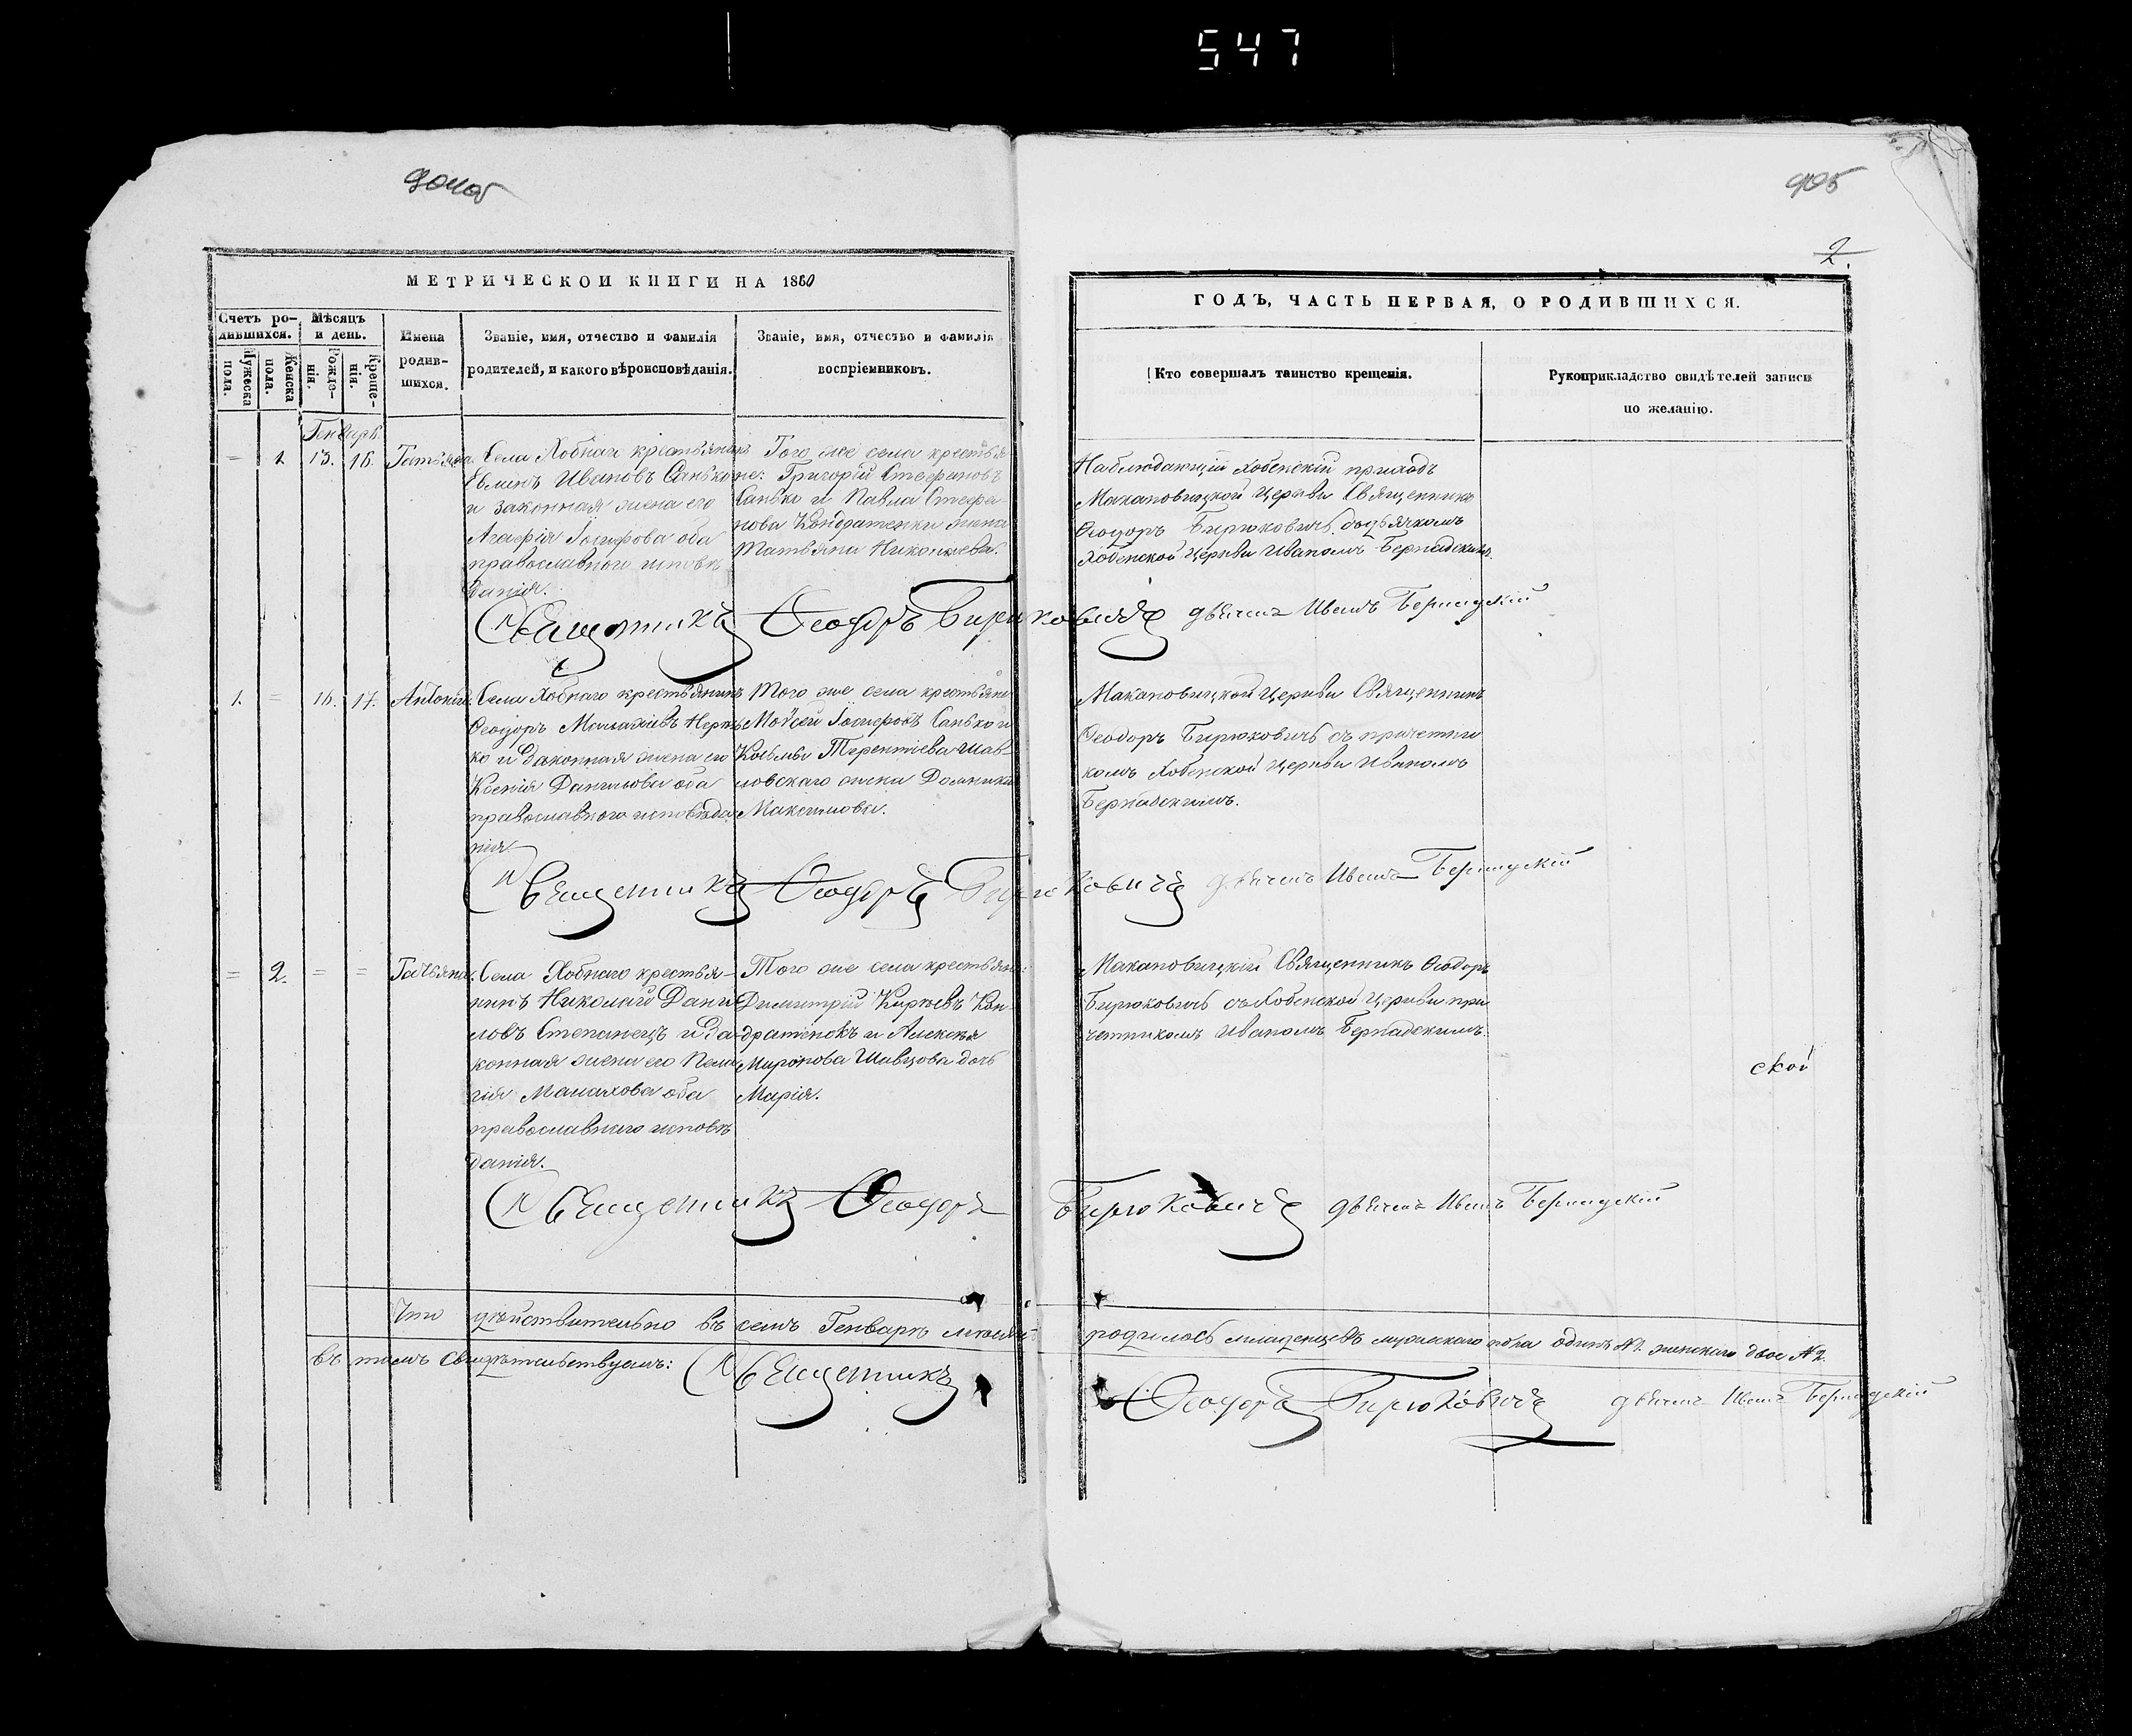 547
905
2.
МЕТРИЧЕСКОЙ КНИГИ НА 1860
ГОДЪ, ЧАСТЬ ПЕРВАЯ, О РОДИВШИХСЯ.
Счетъ ро-
дившихся.
Мѣсяцъ
и день.
Мужеска
пола.
Женска
пола.
Рожде-
нія.
Креще-
нія.
Имена
родив-
шихся.
Званіе, имя, отчество и фамилія
родителей, и какого вѣроисповѣданія.
Званіе, имя, отчество и фамилія
воспріемниковъ.
Кто совершалъ таинство крещенія.
Рукоприкладство свидѣтелей записи
по желанію.
Генваря.
= 1. 13. 16. Татьяна.
Села Хобнаго крестьянинъ
Ивановъ Санько
и законная жена его
Агафія Іосифова оба
православнаго исповѣ
данія.
Того же села крестья
не: Григорій Стефановъ
Санько и Павла Стефа
нова Кондратенки жена
Татьяна Николаева.
Наблюдающій Хобенскій приходъ
Макановицкой Церкви Священникъ
Ѳеодоръ Бирюковичъ съ дьячкомъ
Хобенской Церкви Иваномъ Бернадскимъ.
Священникъ Ѳеодоръ Бирюковичъ дьячекъ Иванъ Бернадскій
1. = 16. 17. Антоній.
Села Хобнаго крестьянинъ
Ѳеодоръ
ко и законная жена его
Ксенія Данилова оба
православнаго исповѣда
нія
Того же села крестьяне
Мойсей Іосифовъ Санько и
Козьмы Терентіева Шав-
ловскаго жена Домникія
Максимова.
Макановицкой Церкви Священникъ
Ѳеодоръ Бирюковичъ съ причетни
комъ Хобенской Церкви Иваномъ
Бернадскимъ.
Священникъ Ѳеодоръ Бирюковичъ дьячекъ Иванъ Бернадскій
= 2. = = Татьяна.
Села Хобнаго крестья-
нинъ Николай Дани
ловъ Степанецъ и за-
конная жена его Пела
гія Малахова оба
православнаго исповѣ
данія.
Того же села крестьяне:
Димитрій Киріевъ Кон-
дратенокъ и Алексѣя
Миронова Шавцова дочь
Марія.
Макановицкій Священникъ Ѳеодоръ
Бирюковичъ съ Хобенской Церкви при
четникомъ Иваномъ Бернадскимъ.
ской
Священникъ Ѳеодоръ Бирюковичъ дьячекъ Иванъ Бернадскій
Что дѣйствительно въ семъ Генварѣ мѣсяцѣ родилось младенцевъ мужескаго пола одинъ №1. женскаго двое №2.
въ томъ свидѣтельствуемъ: Священникъ Ѳеодоръ Бирюковичъ дьячекъ Иванъ Бернадскій